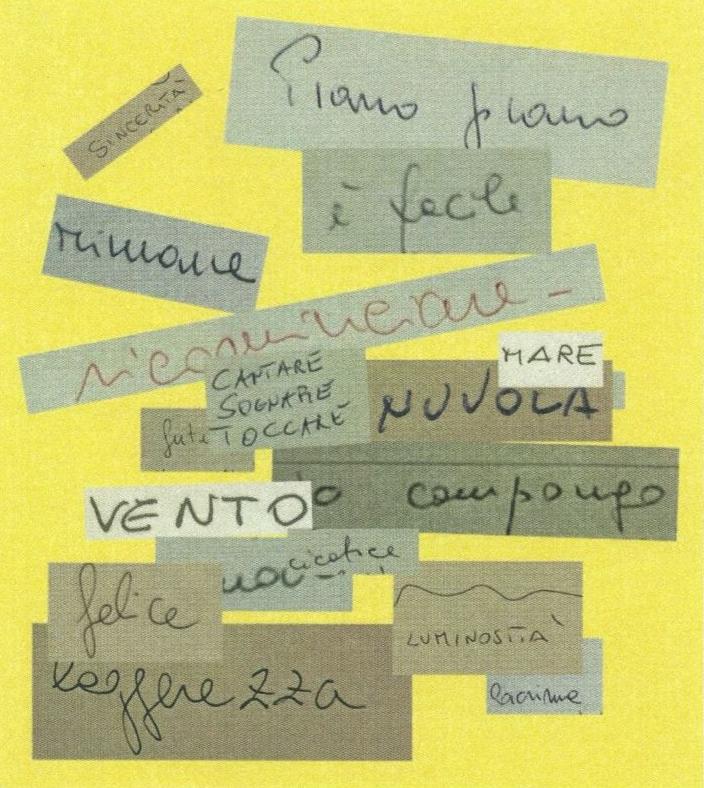 Piano piano
SINCERITÀ
è facile
rimane
ricominciare -
MARE
CANTARE
SOGNARE
TOCCARE
NUVOLA
VENTO
compongo
cicatrice
felice
LUMINOSITÀ
leggerezza
lacrime